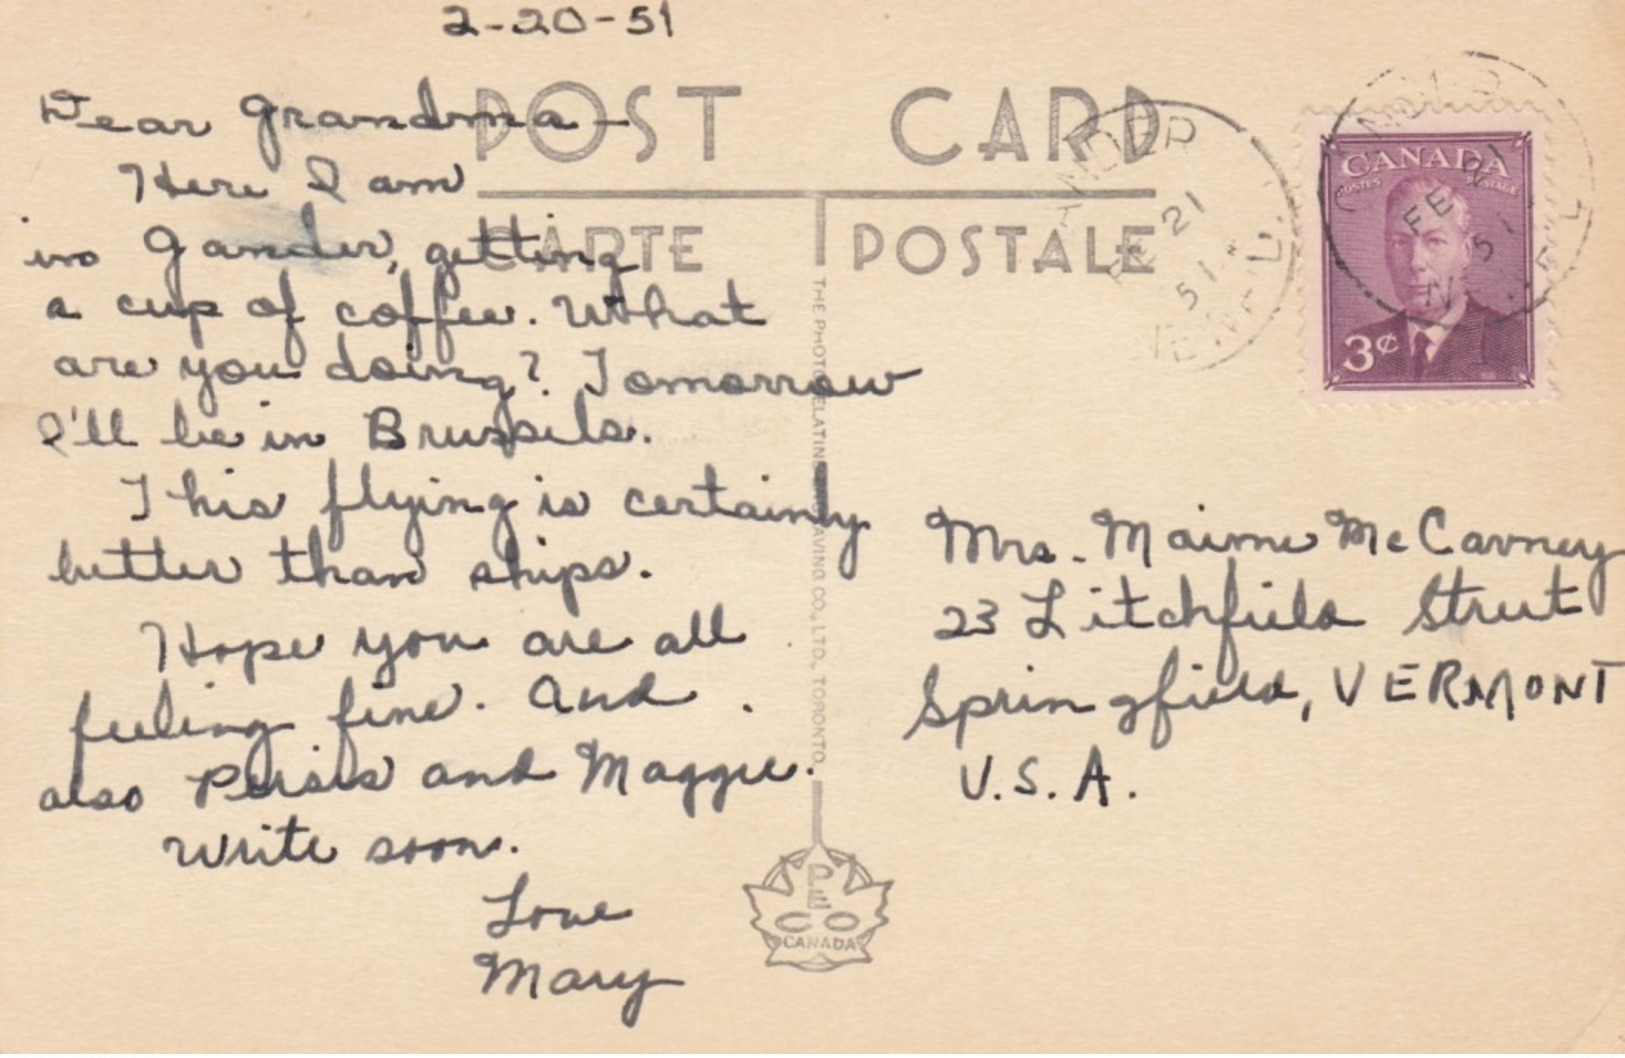 2-20-51
Dear Grandma—
Here I am
in Gander, getting
a cup of coffee. What
are you doing? Tomorrow
I'll be in Brussels.
This flying is certainly
better than ships.
Hope you are all
feeling fine. And
also Persis and Maggie.
Write soon.
Love
Mary
POST CARD
CARTE POSTALE
THE PHOTOGELATINE ENGRAVING CO., LTD., TORONTO.
PECO
CANADA
NDER
FE 21
51
NFL
CANADA
POSTES POSTAGE
3¢
FE 21
51
Mrs. Maime McCarney
23 Litchfield Street
Springfield, VERMONT
U.S.A.